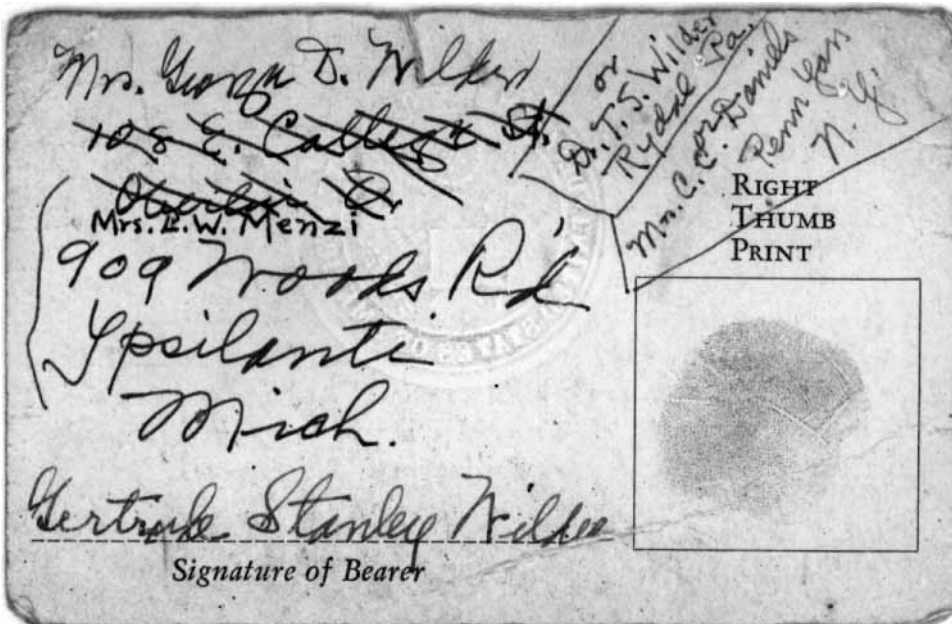 Mrs. George D. Wilder
108 E. College St.
Oberlin O.
Mrs. L.W. Menzi
909 Woods R'd
Ypsilanti
Mich.
or
Dr. T. S. Wilder
Rydal Pa.
or
Mrs. C. C. Daniels
Penn Yan
N. Y.
RIGHT
THUMB
PRINT
Gertrude Stanley Wilder
Signature of Bearer